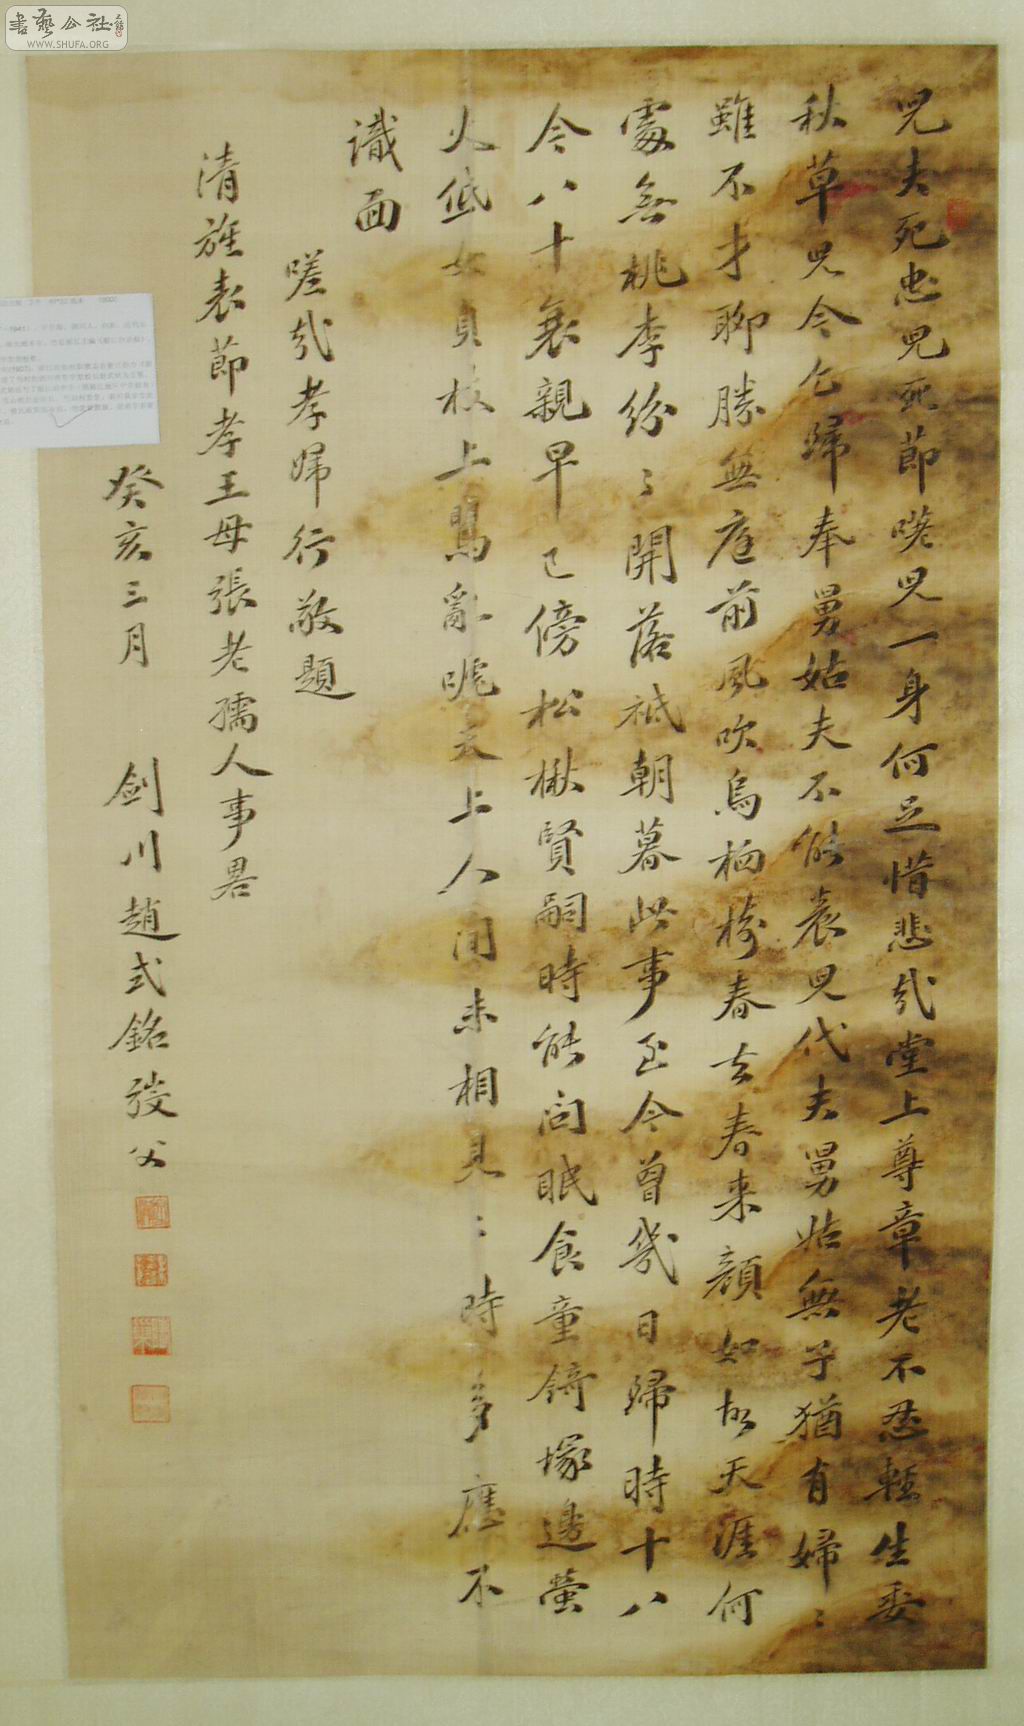 兒夫死忠兒死節嘵兒一身何足惜悲哉堂上尊章老不忍輕生委
秋草兒今乞歸奉舅姑夫不能養兒代夫舅姑無子猶有婦〻
雖不才聊勝無庭前風吹烏栖樹春去春来顔如故天涯何
處無桃李紛〻開落祇朝暮此事至今曾幾日歸時十八
今八十衰親早已傍松楸賢嗣時能問眠食童錡塚邊螢
火低女貞枝上鵑亂嗁天上人间未相見〻時多應不
識面
嗟哉孝婦行敬題
清旌表節孝王母張老孺人事畧
癸亥三月 剑川趙式銘弢父
書藝公社
WWW.SHUFA.ORG